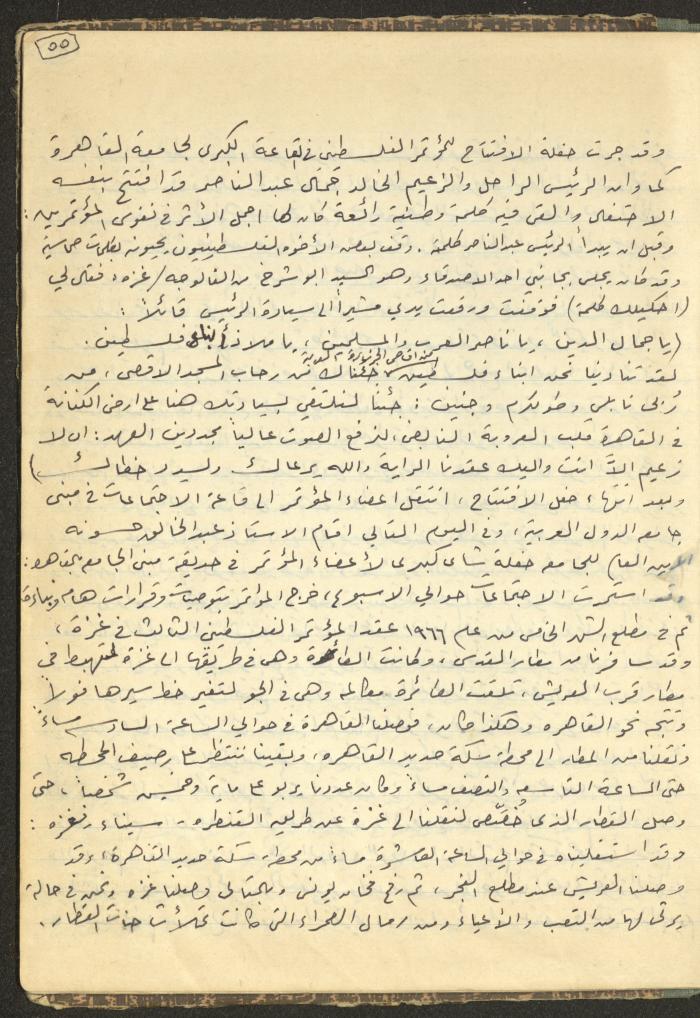 ٥٥
وقد جرت حفلة الافتتاح للمؤتمر الفلسطيني في القاعة الكبرى لجامعة القاهرة
كما وان الرئيس الراحل والزعيم الخالد جمال عبد الناصر قد افتتح بنفسه
الاحتفال والقى فيه كلمة وطنية رائعة كان لها اجمل الأثر في نفوس المؤتمرين:
وقبل ان يبدأ الرئيس عبد الناصر كلمة. وقف بعض الأخوة الفلسطينيون يحيونه بكلمات حماسية
وقد كان يجلس بجانبي احد الاصدقاء وهو السيد ابو شرخ من الفالوجه/غزه فقال لي
(احكيلك كلمة) فوقفت ورفعت يدي مشيراً الى سيادة الرئيس قائلاً:
(يا جمال الدين، يا ناصر العرب والمسلمين، يا ملاذ أبناء فلسطين.
من اقصى الجزيرة العربية
لقد تنادينا نحن ابناء فلسطين جئناك من رحاب المسجد الاقصى، من
رُبى نابلس وطولكرم وجنين: جئنا لنلتقي بسيادتك هنا على ارض الكنانة
في القاهرة قلب العروبة النابض، لنرفع الصوت عالياً مجددين العهد: ان لا
زعيم الاّ انت واليك عقدنا الراية والله يرعاك ويسدد خطاك)
وبعد انتهاء حفل الافتتاح، انتقل اعضاء المؤتمر الى قاعة الاجتماعات في مبنى
جامعه الدول العربية، وفي اليوم التالي اقام الاستاذ عبد الخالق حسونه
الامين العام للجامعه حفلة شاي كبرى لأعضاء المؤتمر في حديقة مبنى الجامعه بالقاهره:
وقد استمرت الاجتماعات حوالي الاسبوع، خرج المؤتمر بتوصيات وقرارات هامه وبناءة
ثم في مطلع الشهر الخامس من عام ١٩٦٦ عقد المؤتمر الفلسطيني الثالث في غزة،
وقد سافرنا من مطار القدس، وكانت الطائرة وهي في طريقها الى غزة لتهبط في
مطار قرب العريش، تلقت الطائرة مكالمه وهي في الجو لتغير خط سيرها فوراً
وتتجه نحو القاهره وهكذا كان، فوصلنا القاهرة في حوالي الساعة السادسه مساءً
ونقلنا من المطار الى محطة سكة حديد القاهره، وبقينا ننتظر على رصيف المحطه
حتى الساعة التاسعه والنصف مساءً وكان عددنا يربو على ماية وخمسين شخصاً، حتى
وصل القطار الذي خُصّص لنقلنا الى غزة عن طريق القنطره - سيناء رفح غزه:
وقد استقليناه في حوالي الساعة العاشرة مساءً من محطة سكة حديد القاهرة، وقد
وصلنا العريش عند مطلع الفجر، ثم رفح فخان يونس وبالتالي وصلنا غزه ونحن في حالة
يرثى لها من التعب والأعياء ومن رمال الصحراء التي كانت تملأ القطار.